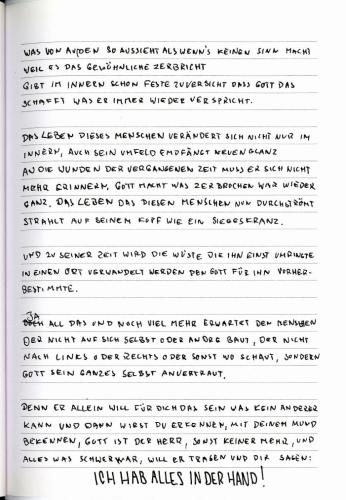 WAS VON AUßEN SO AUSSIEHT ALS WENN'S KEINEN SINN MACHT
WEIL ES DAS GEWÖHNLICHE ZERBRICHT
GIBT IM INNERN SCHON FESTE ZUVERSICHT DASS GOTT DAS
SCHAFFT WAS ER IMMER WIEDER VERSPRICHT.
DAS LEBEN DIESES MENSCHEN VERÄNDERT SICH NICHT NUR IM
INNERN, AUCH SEIN UMFELD EMPFÄNGT NEUEN GLANZ
AN DIE WUNDEN DER VERGANGENEN ZEIT MUSS ER SICH NICHT
MEHR ERINNERN, GOTT MACHT WAS ZERBROCHEN WAR WIEDER
GANZ. DAS LEBEN DAS DIESEN MENSCHEN NUN DURCHSTRÖMT
STRAHLT AUF SEINEM KOPF WIE EIN SIEGESKRANZ.
UND ZU SEINER ZEIT WIRD DIE WÜSTE DIE IHN EINST UMRINGTE
IN EINEN ORT VERWANDELT WERDEN DEN GOTT FÜR IHN VORHER-
BESTIMMTE.
JA ALL DAS UND NOCH VIEL MEHR ERWARTET DEN MENSCHEN
DER NICHT AUF SICH SELBST ODER ANDRE BAUT, DER NICHT
NACH LINKS ODER RECHTS ODER SONST WO SCHAUT, SONDERN
GOTT SEIN GANZES SELBST ANVERTRAUT.
DENN ER ALLEIN WILL FÜR DICH DAS SEIN WAS KEIN ANDERER
KANN UND DANN WIRST DU ERKENNEN, MIT DEINEM MUND
BEKENNEN, GOTT IST DER HERR, SONST KEINER MEHR, UND
ALLES WAS SCHWER WAR, WILL ER TRAGEN UND DIR SAGEN:
ICH HAB ALLES IN DER HAND!